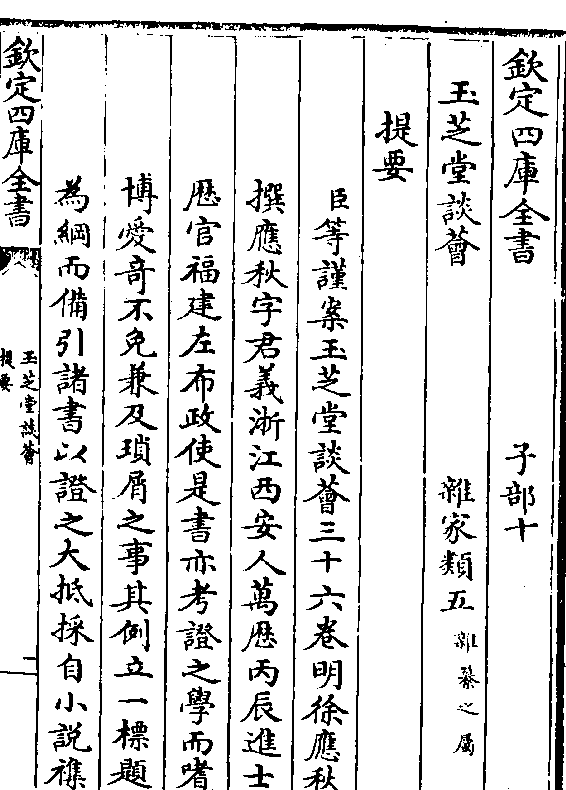 欽定四庫全書　子部十
玉芝堂談薈　雜家類五雜纂之屬
提要
臣等謹案玉芝堂談薈三十六卷明徐應秋
撰應秋字君義浙江西安人萬厯丙辰進士
厯官福建左布政使是書亦考證之學而嗜
博愛奇不免兼及瑣屑之事其例立一標題
為綱而備引諸書以證之大抵採自小說襍
欽定四庫全書
玉芝堂談薈
提要
一